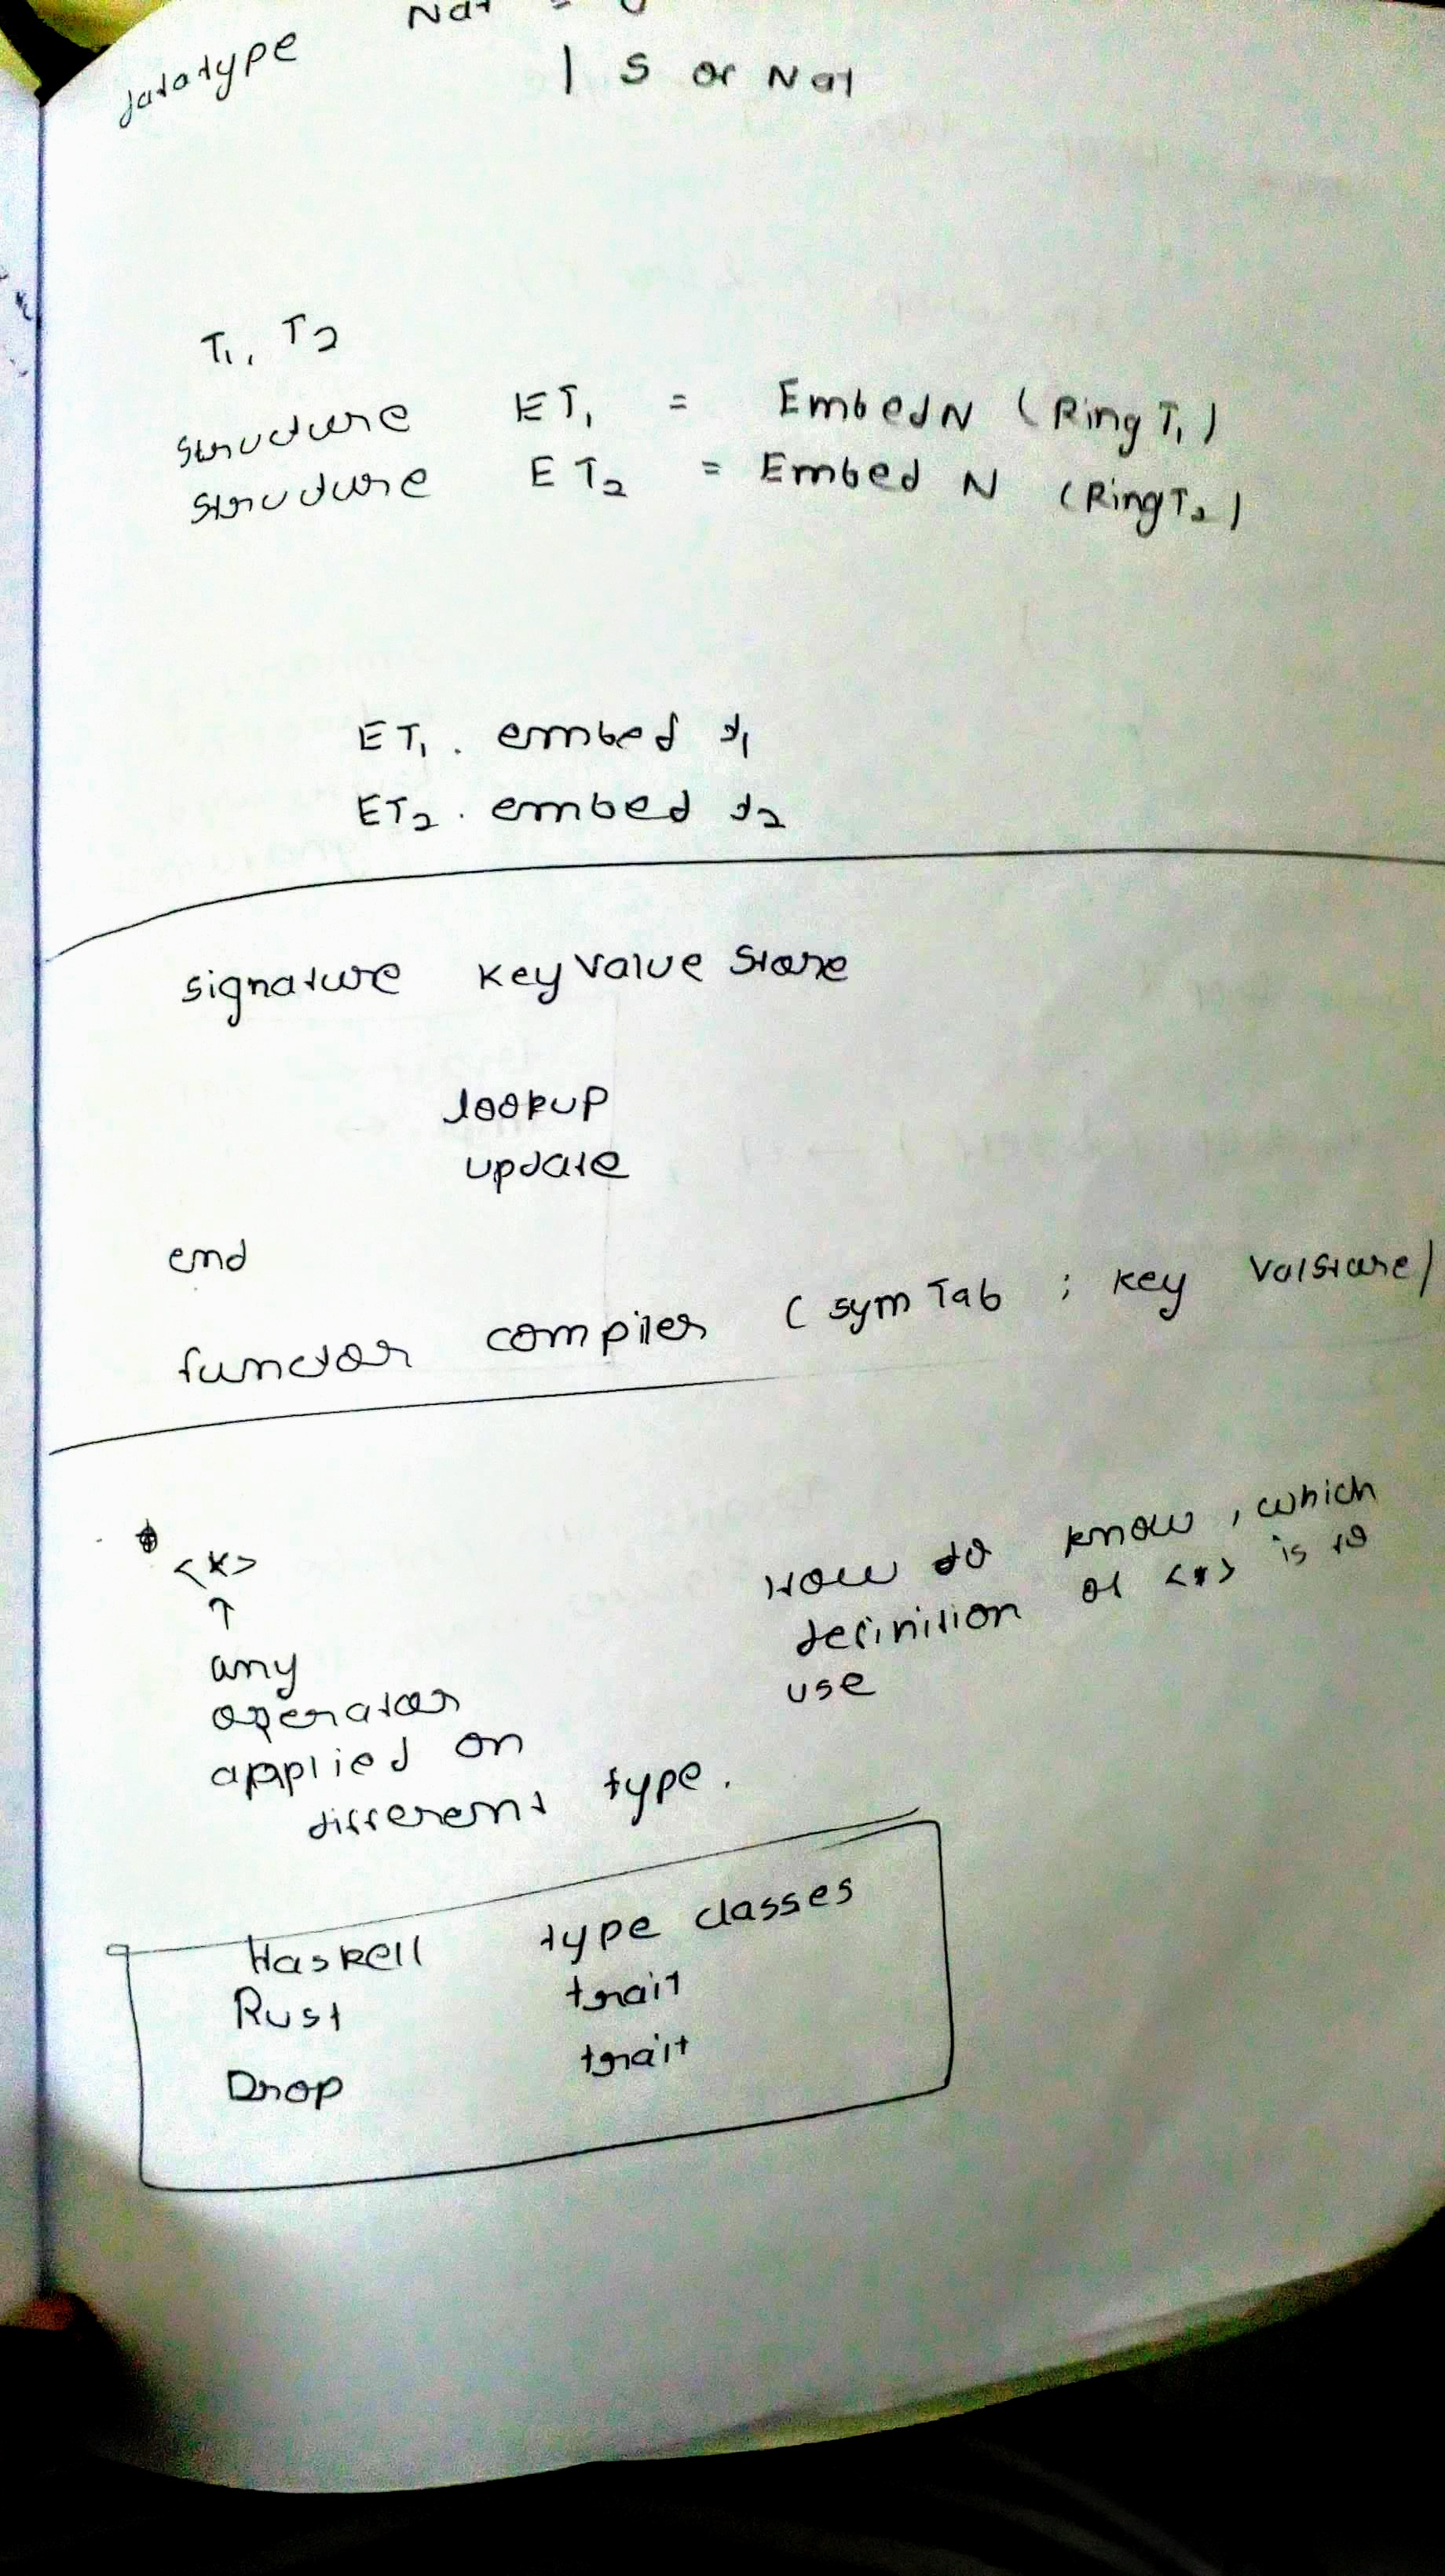 datatype Nat = 0
| S of Nat
T1, T2
structure ET1 = EmbedN (Ring T1)
structure ET2 = Embed N (Ring T2)
ET1 . embed t1
ET2 . embed t2
signature KeyValue Store
lookup
update
end
functor compiler (symTab : Key ValStore)
<*>
↑
any
operator
applied on
different type.
How to know, which
definition of <*> is to
use
Haskell type classes
Rust trait
Drop trait